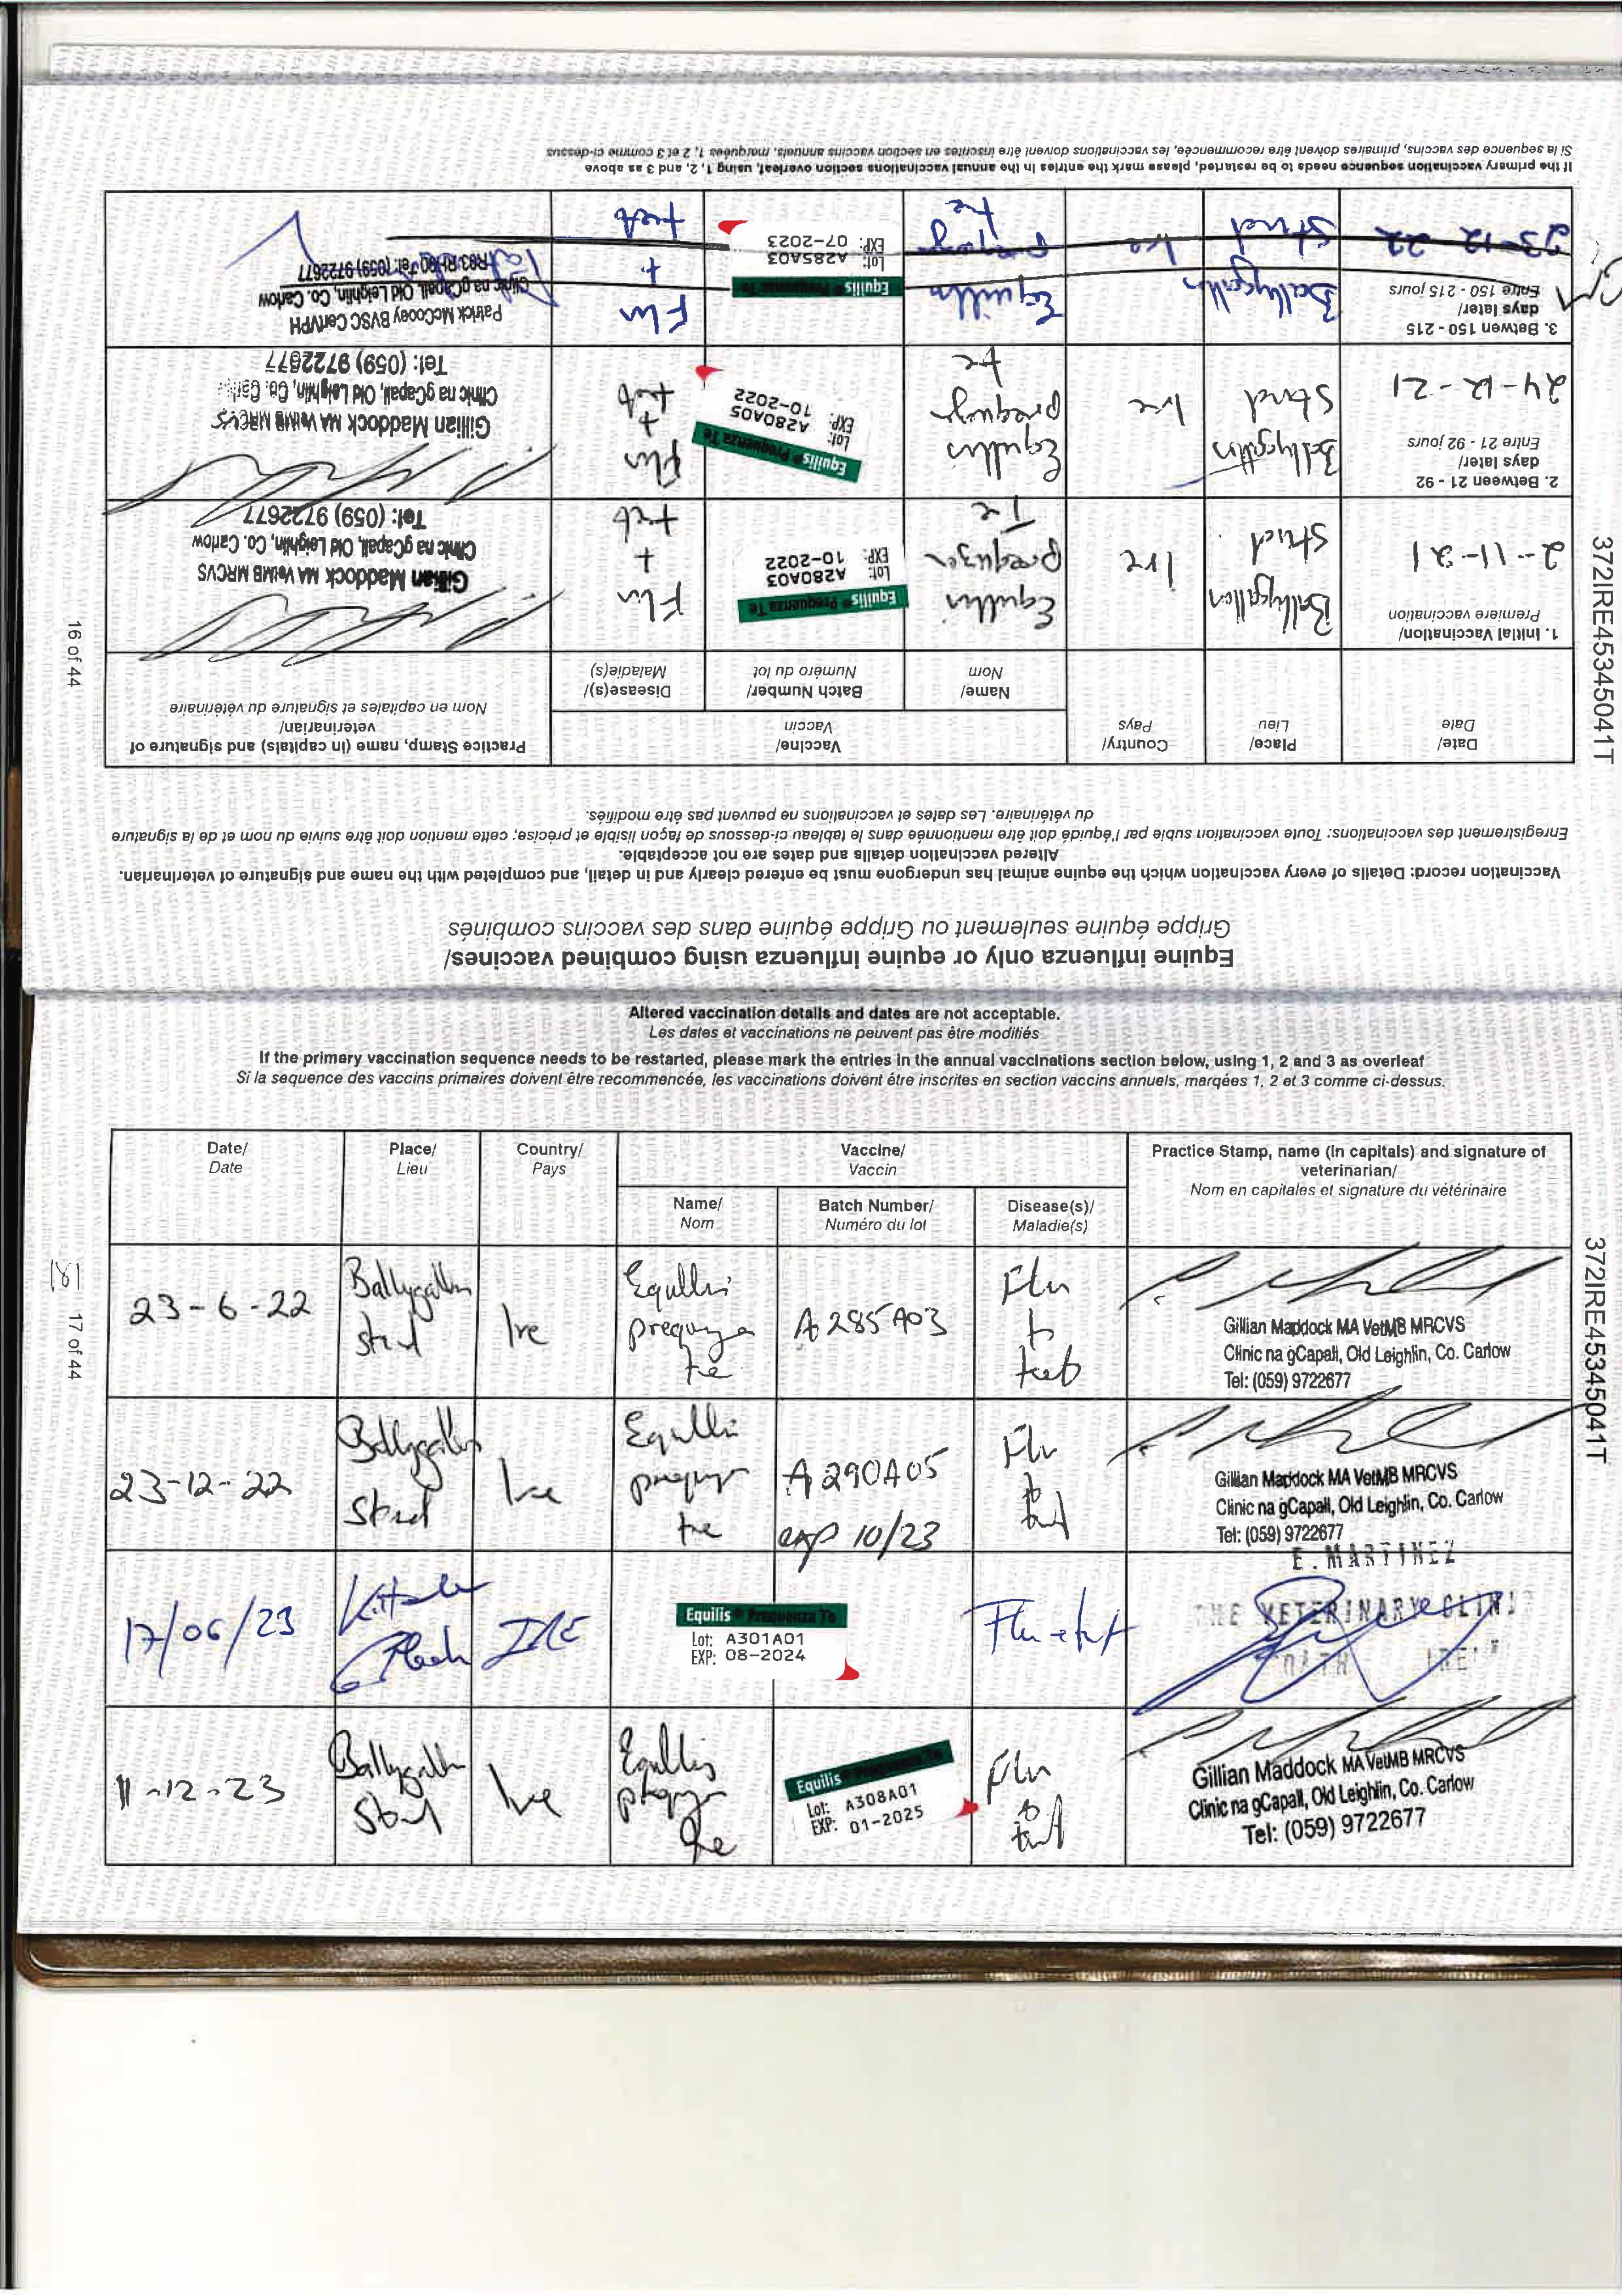 Equine influenza only or equine influenza using combined vaccines/
Grippe équine seulement ou Grippe équine dans des vaccins combinés
Vaccination record: Details of every vaccination which the equine animal has undergone must be entered clearly and in detail, and completed with the name and signature of veterinarian.
Altered vaccination details and dates are not acceptable.
Enregistrement des vaccinations: Toute vaccination subie par l'équidé doit être mentionnée dans le tableau ci-dessous de façon lisible et précise; cette mention doit être suivie du nom et de la signature
du vétérinaire. Les dates et vaccinations ne peuvent pas être modifiés.
Date/
Date
Place/
Lieu
Country/
Pays
Vaccine/
Vaccin
Practice Stamp, name (in capitals) and signature of
veterinarian/
Nom en capitales et signature du vétérinaire
Name/
Nom
Batch Number/
Numéro du lot
Disease(s)/
Maladie(s)
1. Initial Vaccination/
Première vaccination
2-11-21
Ballygallon
Stud
Ire
Equilis
prequenza
Te
Equilis Prequenza Te
Lot: A280A03
EXP: 10-2022
Flu
+
tet
Gillian Maddock MA VetMB MRCVS
Clinic na gCapall, Old Leighlin, Co. Carlow
Tel: (059) 9722677
2. Between 21 - 92
days later/
Entre 21 - 92 jours
24-12-21
Ballygallon
Stud
Ire
Equilis
prequenza
te
Equilis Prequenza Te
Lot: A280A05
EXP: 10-2022
Flu
+
tet
Gillian Maddock MA VetMB MRCVS
Clinic na gCapall, Old Leighlin, Co. Carlow
Tel: (059) 9722677
3. Betwen 150 - 215
days later/
Entre 150 - 215 jours
23-12-22
Ballygallon
Stud
Ire
Equilis
prequenza
te
Equilis Prequenza Te
Lot: A285A03
EXP: 07-2023
Flu
+
tet
Patrick McCooey BVSC CertVPH
Clinic na gCapall, Old Leighlin, Co. Carlow
Tel: (059) 9722677
If the primary vaccination sequence needs to be restarted, please mark the entries in the annual vaccinations section overleaf, using 1, 2, and 3 as above
Si la sequence des vaccins, primaires doivent être recommencée, les vaccinations doivent être inscrites en section vaccins annuels, marquées 1, 2 et 3 comme ci-dessus
16 of 44
372IRE45345041T
Altered vaccination details and dates are not acceptable.
Les dates et vaccinations ne peuvent pas être modifiés
If the primary vaccination sequence needs to be restarted, please mark the entries in the annual vaccinations section below, using 1, 2 and 3 as overleaf
Si la sequence des vaccins primaires doivent être recommencée, les vaccinations doivent être inscrites en section vaccins annuels, marqées 1, 2 et 3 comme ci-dessus.
Date/
Date
Place/
Lieu
Country/
Pays
Vaccine/
Vaccin
Practice Stamp, name (in capitals) and signature of
veterinarian/
Nom en capitales et signature du vétérinaire
Name/
Nom
Batch Number/
Numéro du lot
Disease(s)/
Maladie(s)
23-6-22
Ballygallon
Stud
Ire
Equilis
prequenza
te
A285A03
Flu
+
tet
Gillian Maddock MA VetMB MRCVS
Clinic na gCapall, Old Leighlin, Co. Carlow
Tel: (059) 9722677
23-12-22
Ballygallon
Stud
Ire
Equilis
prequenza
te
A290A05
exp 10/23
Flu
+
tet
Gillian Maddock MA VetMB MRCVS
Clinic na gCapall, Old Leighlin, Co. Carlow
Tel: (059) 9722677
17/06/23
IRE
Equilis Prequenza Te
Lot: A301A01
EXP: 08-2024
Flu tet
E. MARTINEZ
THE VETERINARY CLINIC
11-12-23
Ballygallon
Stud
Ire
Equilis
prequenza
te
Equilis Prequenza Te
Lot: A308A01
EXP: 01-2025
Flu
+
tet
Gillian Maddock MA VetMB MRCVS
Clinic na gCapall, Old Leighlin, Co. Carlow
Tel: (059) 9722677
17 of 44
372IRE45345041T